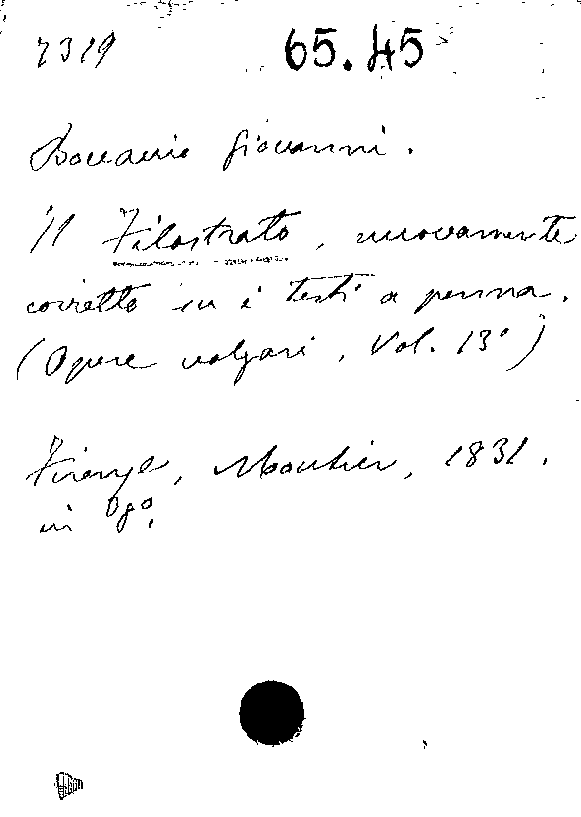 7319 65.45
Boccaccio Giovanni.
Il Filostrato, nuovamente
corretto su i testi a penna.
(Opere volgari, Vol. 13°)
Firenze, Moutier, 1831.
in 8°.